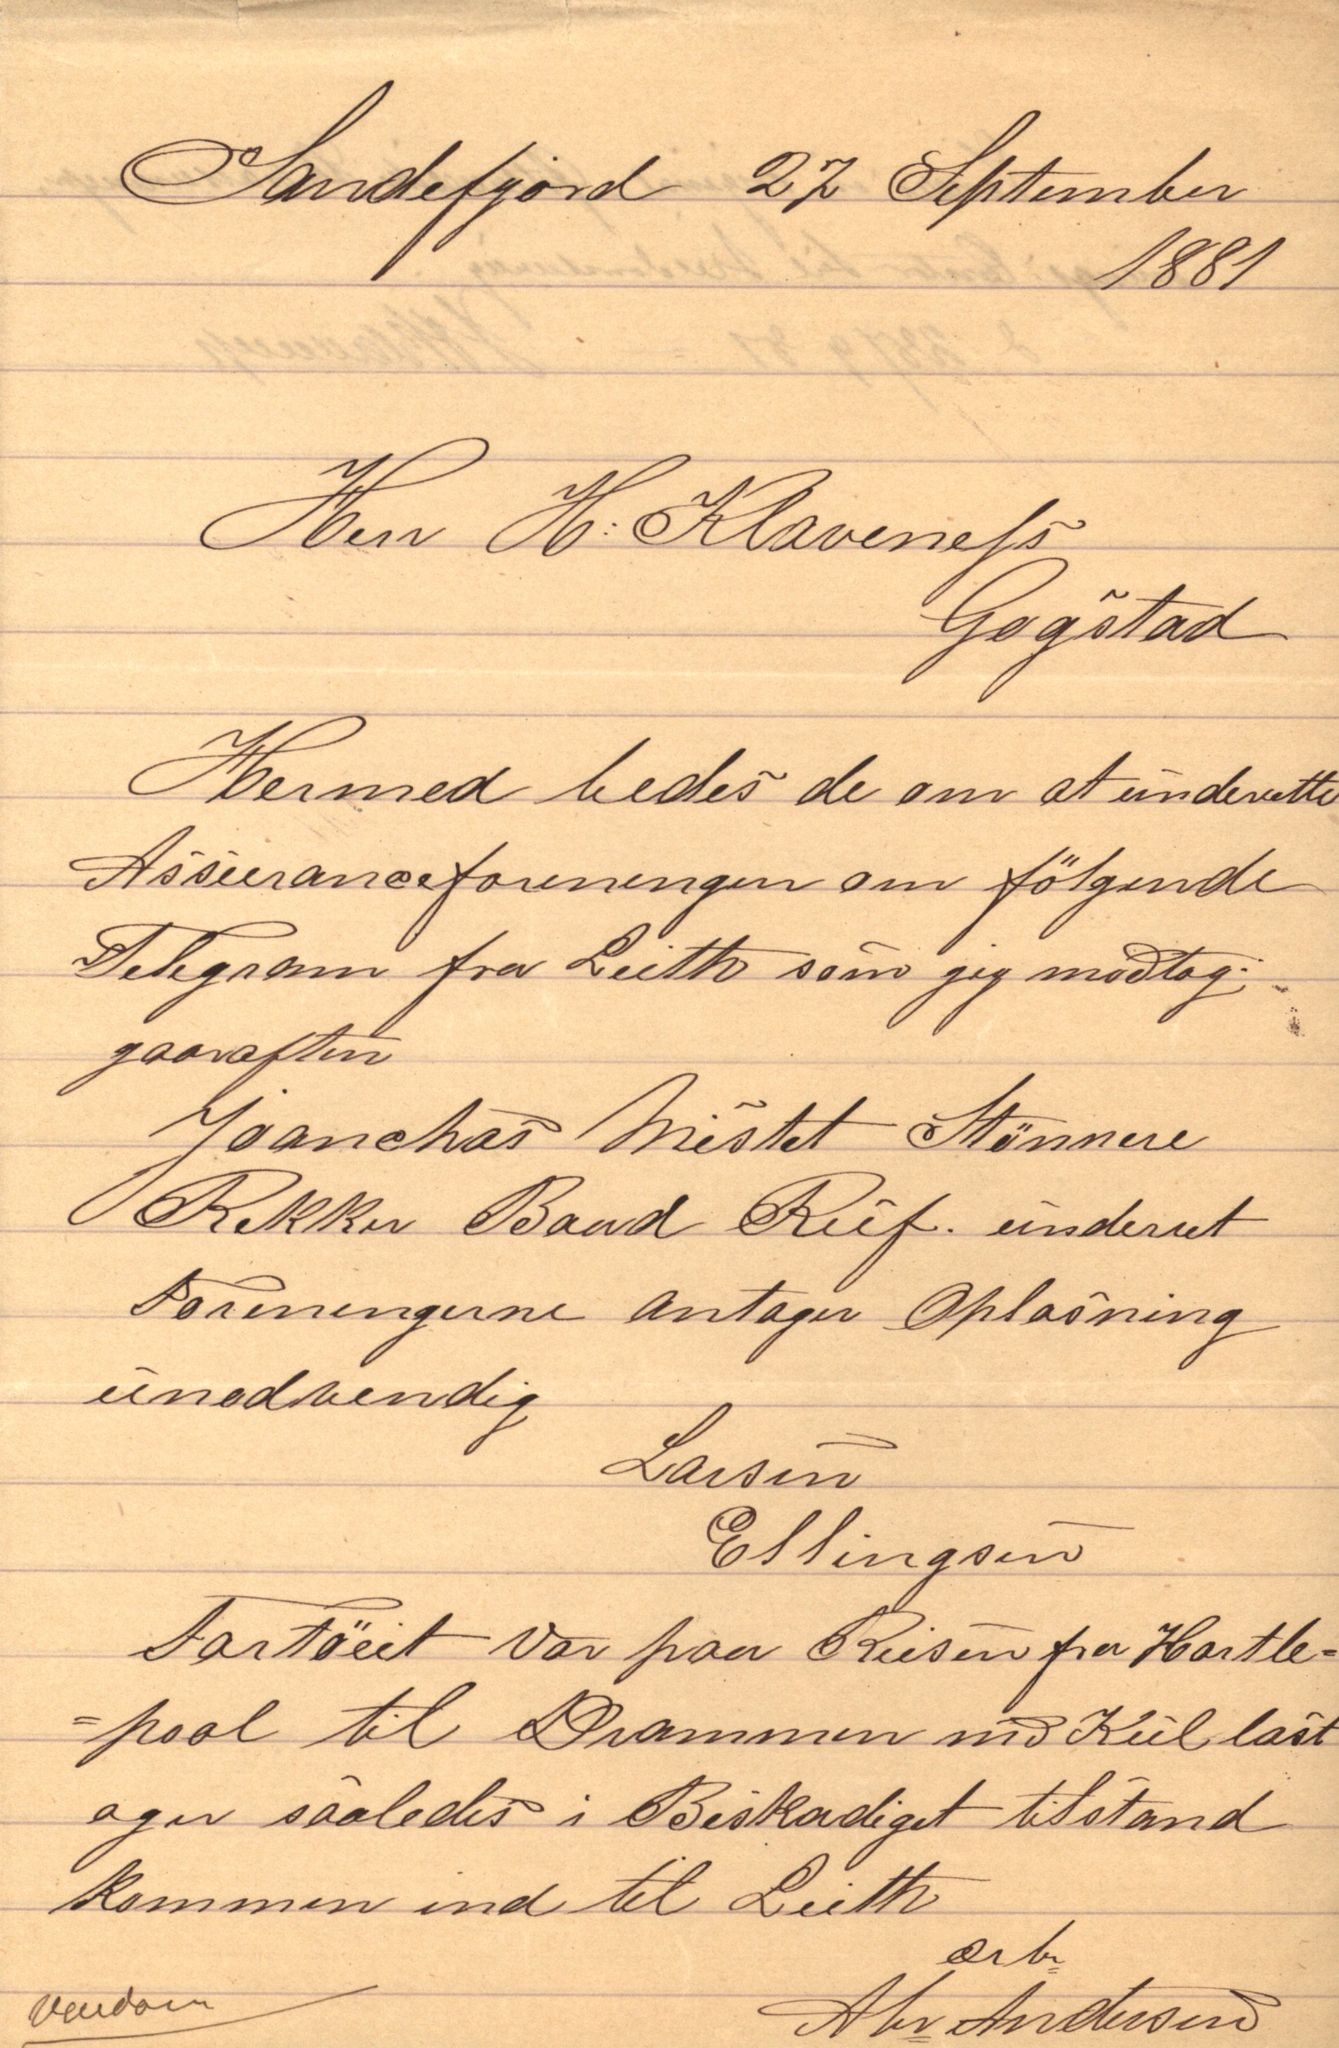 Sandefjord 27 September
1881
Herr H: Klaveness
Gogstad
Hermed bedes de om at underrette
Assuranceforeningen om følgende
Telegram fra Leith som jeg modtog
gaaraften
Joanchas Mistet Stönnere
Rekker Baad Ruf. underret
Foreningerne antager Oplosning
unodvendig
Larsen
Ellingsen
Fartöiet var paa Reisen fra Hartle=
=pool til Drammen md Kul last
og er saaledes i Beskadiget tilstand
kommen ind til Leith
ærb.
Abr. Andersen
Vendom